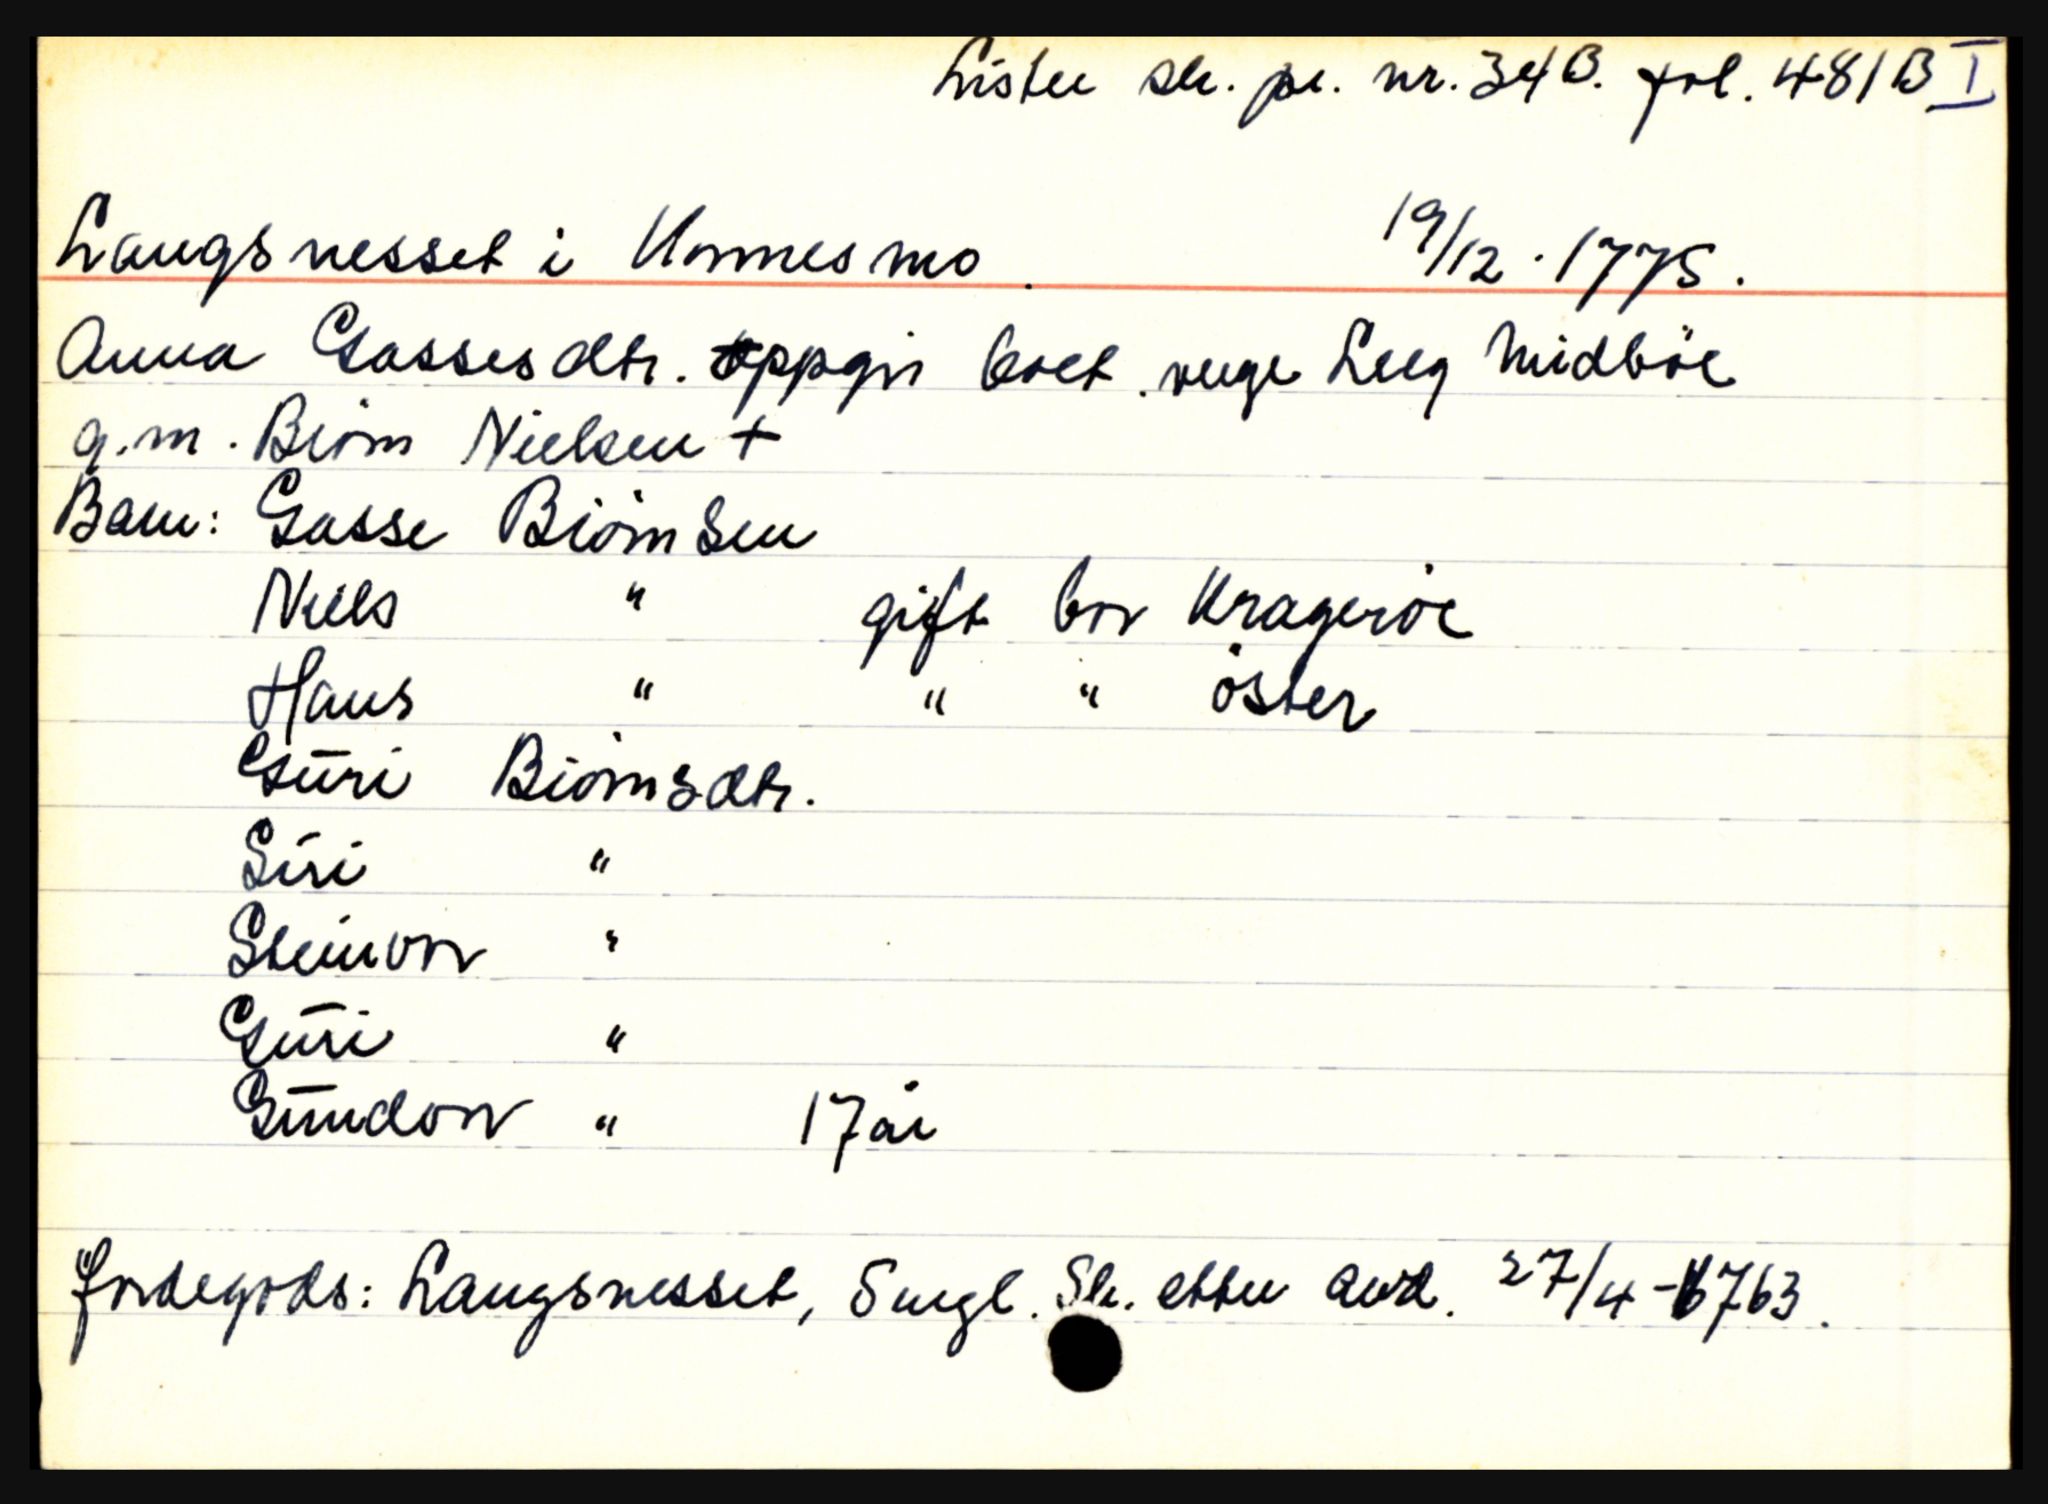 Lister sk. pr. nr. 34B. fol. 481B I
Langsnesset i Konnesmo. 19/12.1775.
Anna Gassesdtr. oppgir boet. verge Leeg Midböe
g.m. Biörn Nielsen +
Barn: Gasse Biörnsen
Niels " gift bor Krageröe
Hans " " " öster
Guri Biörnsdtr.
Siri "
Steinvor "
Guri "
Gundvor " 17 år
Jordegods: Langsnesset, Sk. etter avd. 27/4-1763.